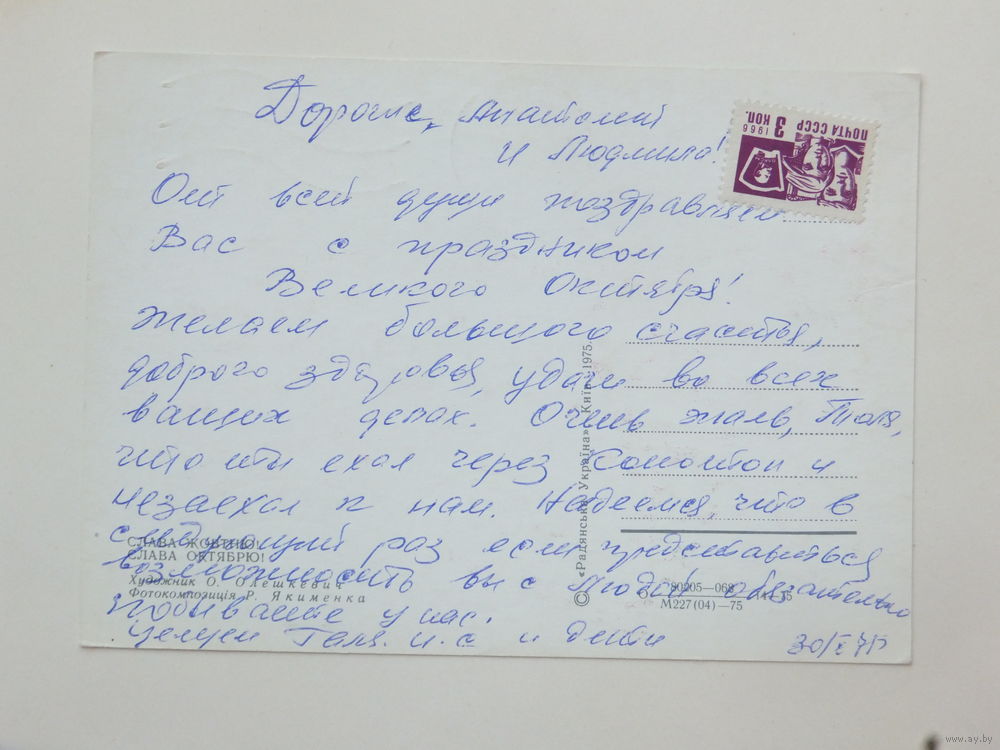 Дорогие, Анатолий
и Людмила!
От всей души поздравляем
Вас с праздником
Великого Октября!
Желаем большого счастья,
доброго здоровья, удач во всех
ваших делах. Очень жаль, Толя,
что ты ехал через и
незаехал к нам. Надеемся, что в
следующий раз если представиться
возможность вы с Людой обязательно
побываете у нас.
Целуем Галя и дети
30/
ПОЧТА СССР
3 КОП.
1966
СЛАВА ЖОВТНЮ!
СЛАВА ОКТЯБРЮ!
Художник О. Олешкевич
Фотокомпозиція Р. Якименка
© «Радянська Україна». Київ. 1975.
80205—068
М227(04)—75
www.ay.by